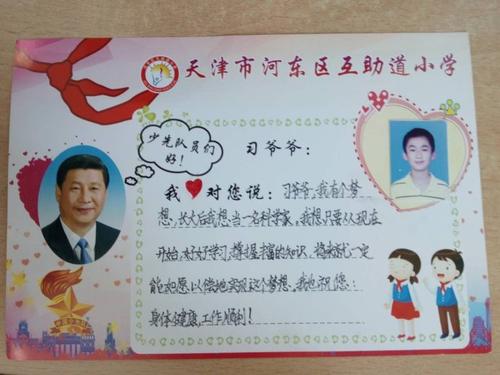 天津市河东区互助道小学
少先队员们
好！
习爷爷：
我 对您说：习爷爷，我有个梦
想，长大后我想当一名科学家，我想只要从现在
开始，好好学习，掌握丰富的知识，将来就一定
能如愿以偿地实现这个梦想，我也祝您：
身体健康，工作顺利！